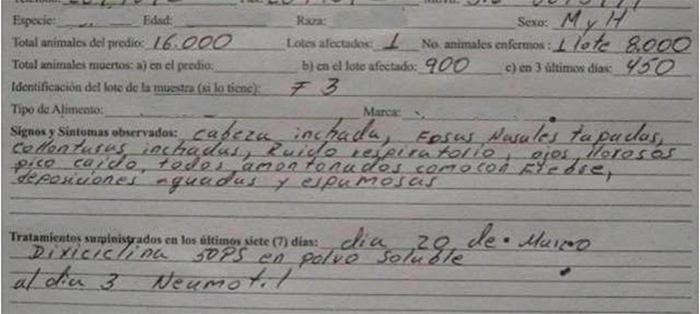 Especie: Edad: Raza: Sexo: M y H
Total animales del predio: 16.000 Lotes afectados: 1 No. animales enfermos: 1 lote 8.000
Total animales muertos: a) en el predio: b) en lote afectado: 900 c) en 3 últimos días: 450
Identificación del lote de la muestra (si lo tiene): F 3
Tipo de Alimento: Marca:
Signos y Síntomas observados: cabeza inchada, Fosas Nasales tapadas,
inchadas, Ruido respiratorio, ojos llorosos
pico caido, todos amontonados como con Fiebre,
deposiciones aguadas y espumosas
Tratamientos suministrados en los últimos siete (7) días: dia 20 de Marzo
Dixiciclina 50PS en polvo soluble
al dia 3 Neumotil